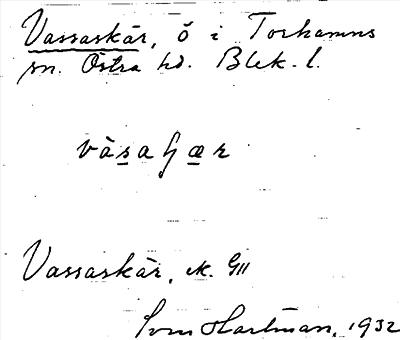 Vassaskär, ö i Torhamns
sn. Östra hd. Blek. l.
Vassaskär,
Sven Hartman, 1932